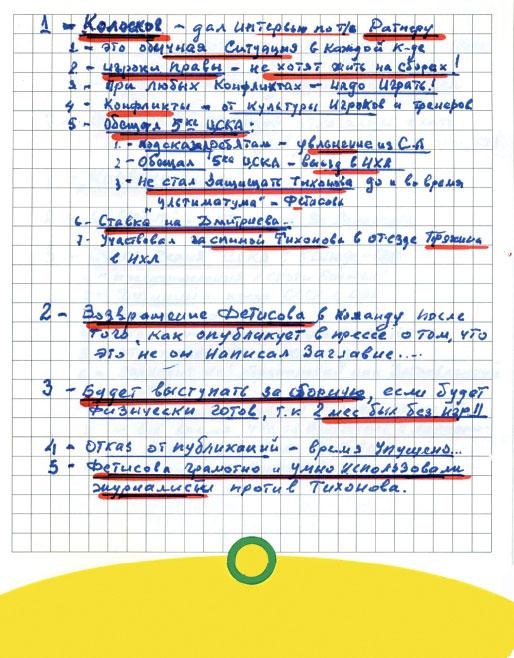 1 - Колосков - дал интервью по т/в Ратнеру
1 - Это обычная ситуация в каждой к-де
2 - игроки правы - не хотят жить на сборах!
3 - При любых конфликтах - надо играть!
4 - Конфликты - от культуры игроков и тренеров
5 - Обещал 5ке ЦСКА:
1. - подсказал ребятам - увольнение из С.А
2 - Обещал 5ке ЦСКА - выезд в НХЛ
3 - Не стал защищать Тихонова до и во время
"ультиматума" - Фетисова
6 - Ставка на Дмитриева..
7. Участвовал за спиной Тихонова в отъезде Пряхина
в НХЛ
2 - Возвращение Фетисова в команду после
того, как опубликует в прессе о том, что
это не он написал Заглавие....
3 - Будет выступать за сборную, если будет
физически готов, т.к 2 мес был без игр!!
4 - Отказ от публикаций - время упущено...
5 - Фетисова грамотно и умно использовали
журналисты против Тихонова.